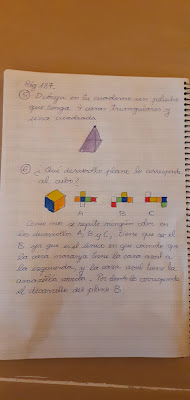 Pág 187.
⑤ Dibuja en tu cuaderno un poliedro
que tenga 4 caras triangulares y
una cuadrada.
⑥ ¿Qué desarrollo plano le corresponde
al cubo?
A B C
Como no se repite ningún color en
los desarrollos A, B y C, tiene que ser el
B ya que es el único en que coincide que
la cara naranja tiene la cara azul a
la izquierda, y la cara azul tiene la
amarilla arriba. Por tanto le corresponde
el desarrollo del plano B.